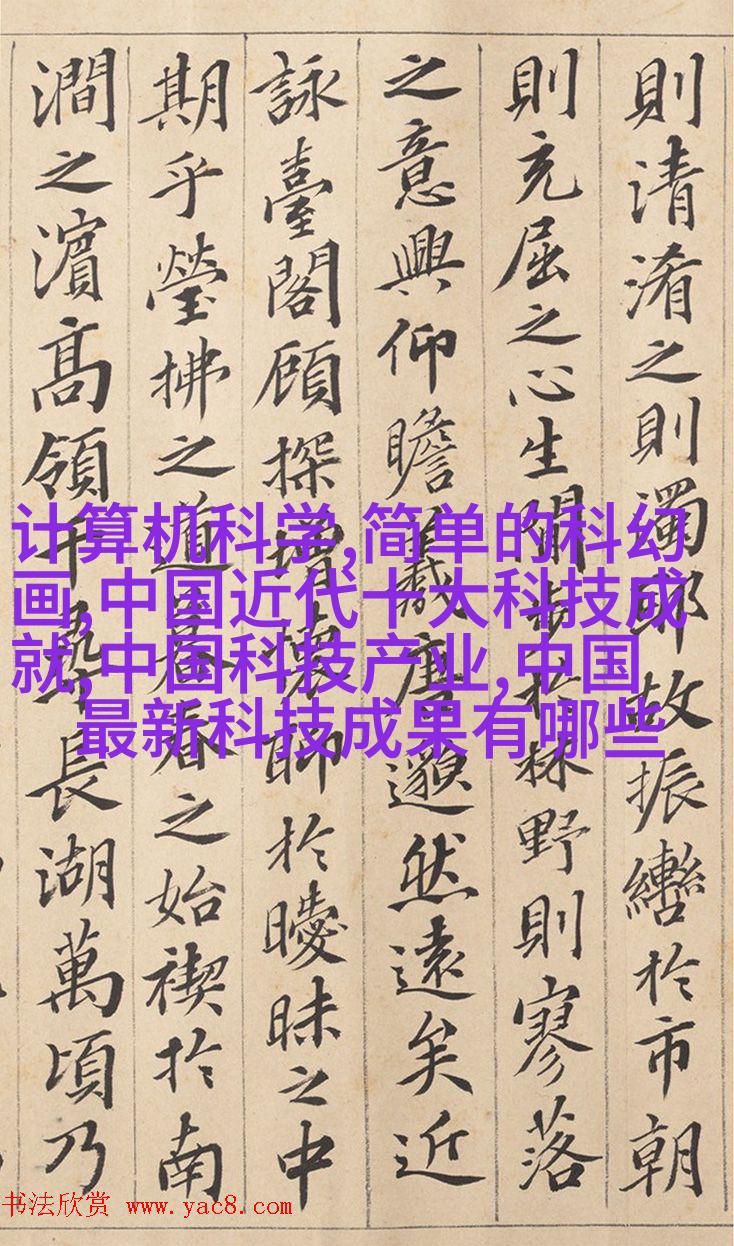 則清淆之則濁耶故振轡於市朝
則充屈之心生閒步於林野則寥落
之意興仰瞻羲唐邈然遠矣近
詠臺閣顧探增懷聊於曖昧之中
期乎瑩拂之道暮春之始禊於南
澗之濱高領千尋長湖萬頃乃
计算机科学,简单的科幻
画,中国近代十大科技成
就,中国科技产业,中国
最新科技成果有哪些
书法欣赏 www.yac8.com